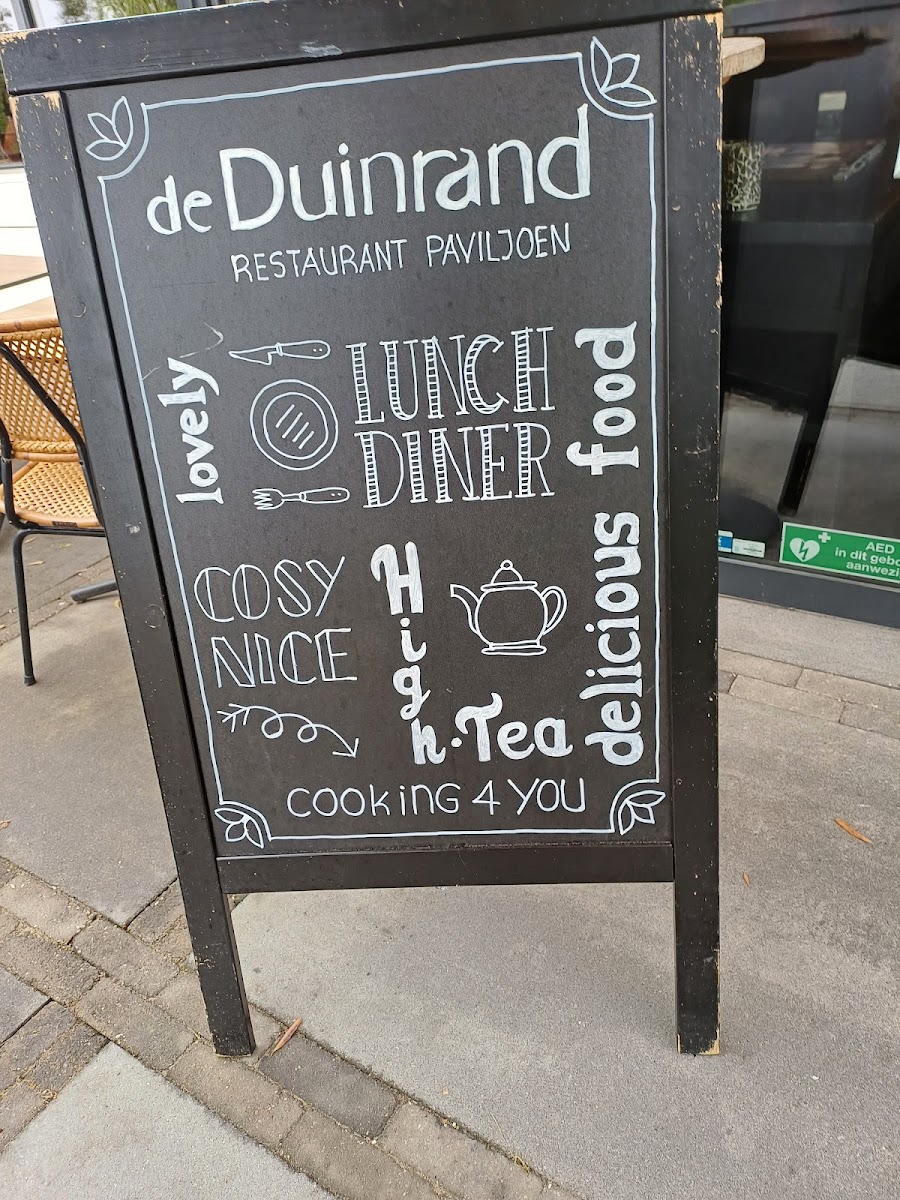 de Duinrand
RESTAURANT PAVILJOEN
lovely
LUNCH
DINER
delicious food
COSY
NICE
High·Tea
COOKING 4 YOU
AED
in dit
aanwezi